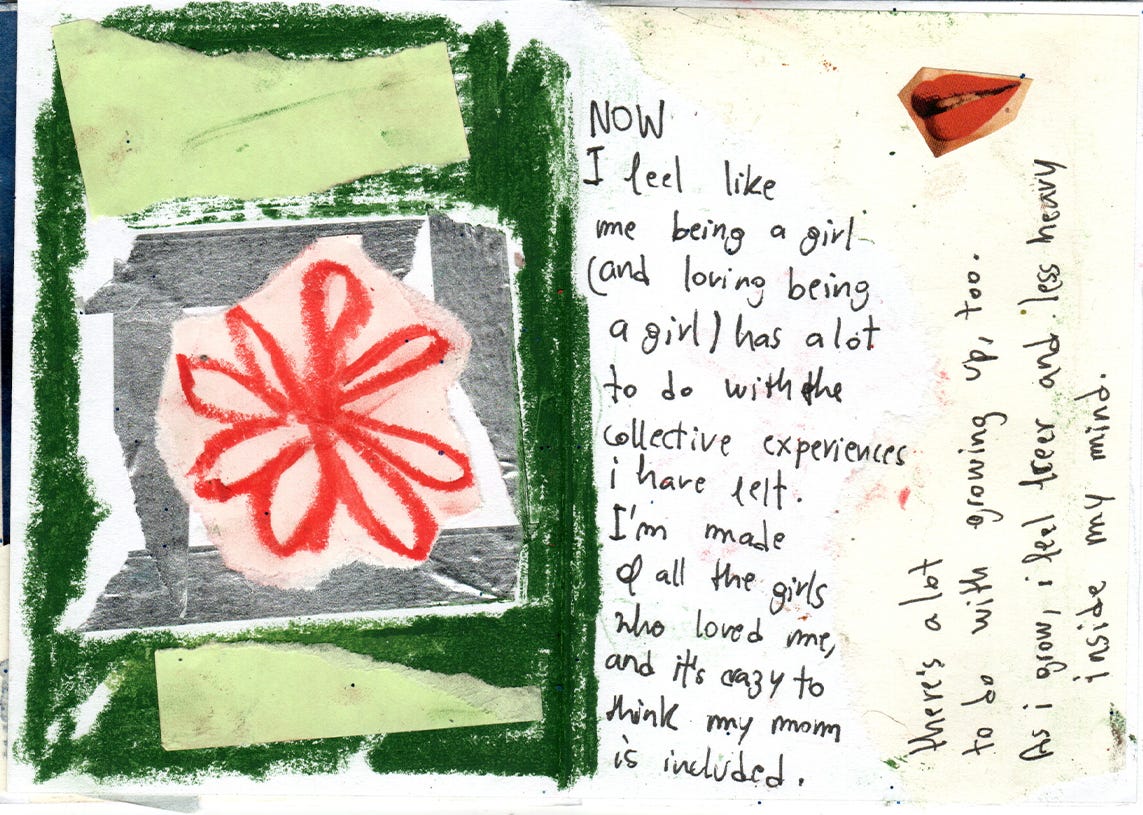 NOW
I feel like
me being a girl
(and loving being
a girl) has a lot
to do with the
collective experiences
i have felt.
I'm made
of all the girls
who loved me,
and it's crazy to
think my mom
is included.
there's a lot
to do with growing up, too.
As i grow, i feel freer and less heavy
inside my mind.